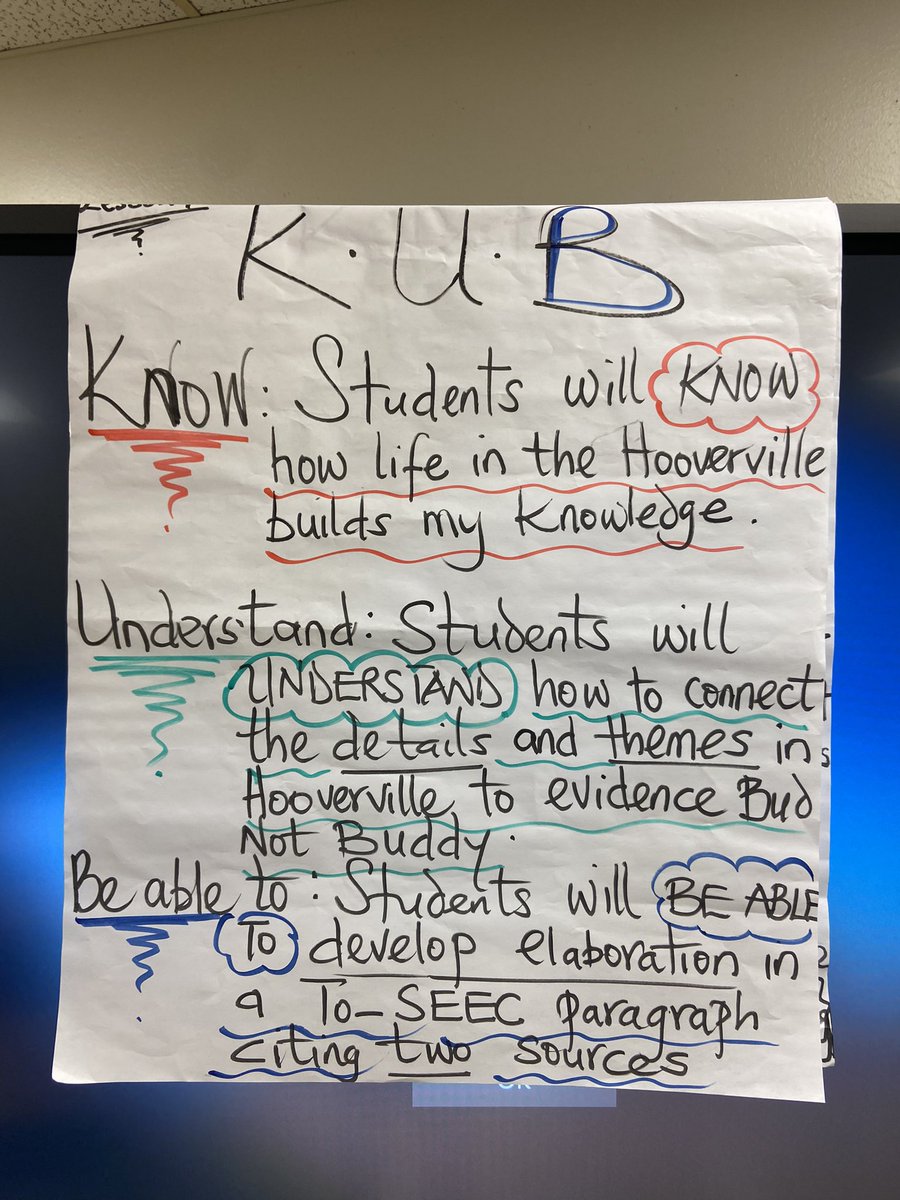 K.U.B
Know: Students will KNOW
how life in the Hooverville
builds my Knowledge.
Understand: Students will
UNDERSTAND how to connect
the details and themes in
Hooverville to evidence Bud
Not Buddy.
Be able to: Students will BE ABLE
TO develop elaboration in
a To-SEEC paragraph
citing two sources